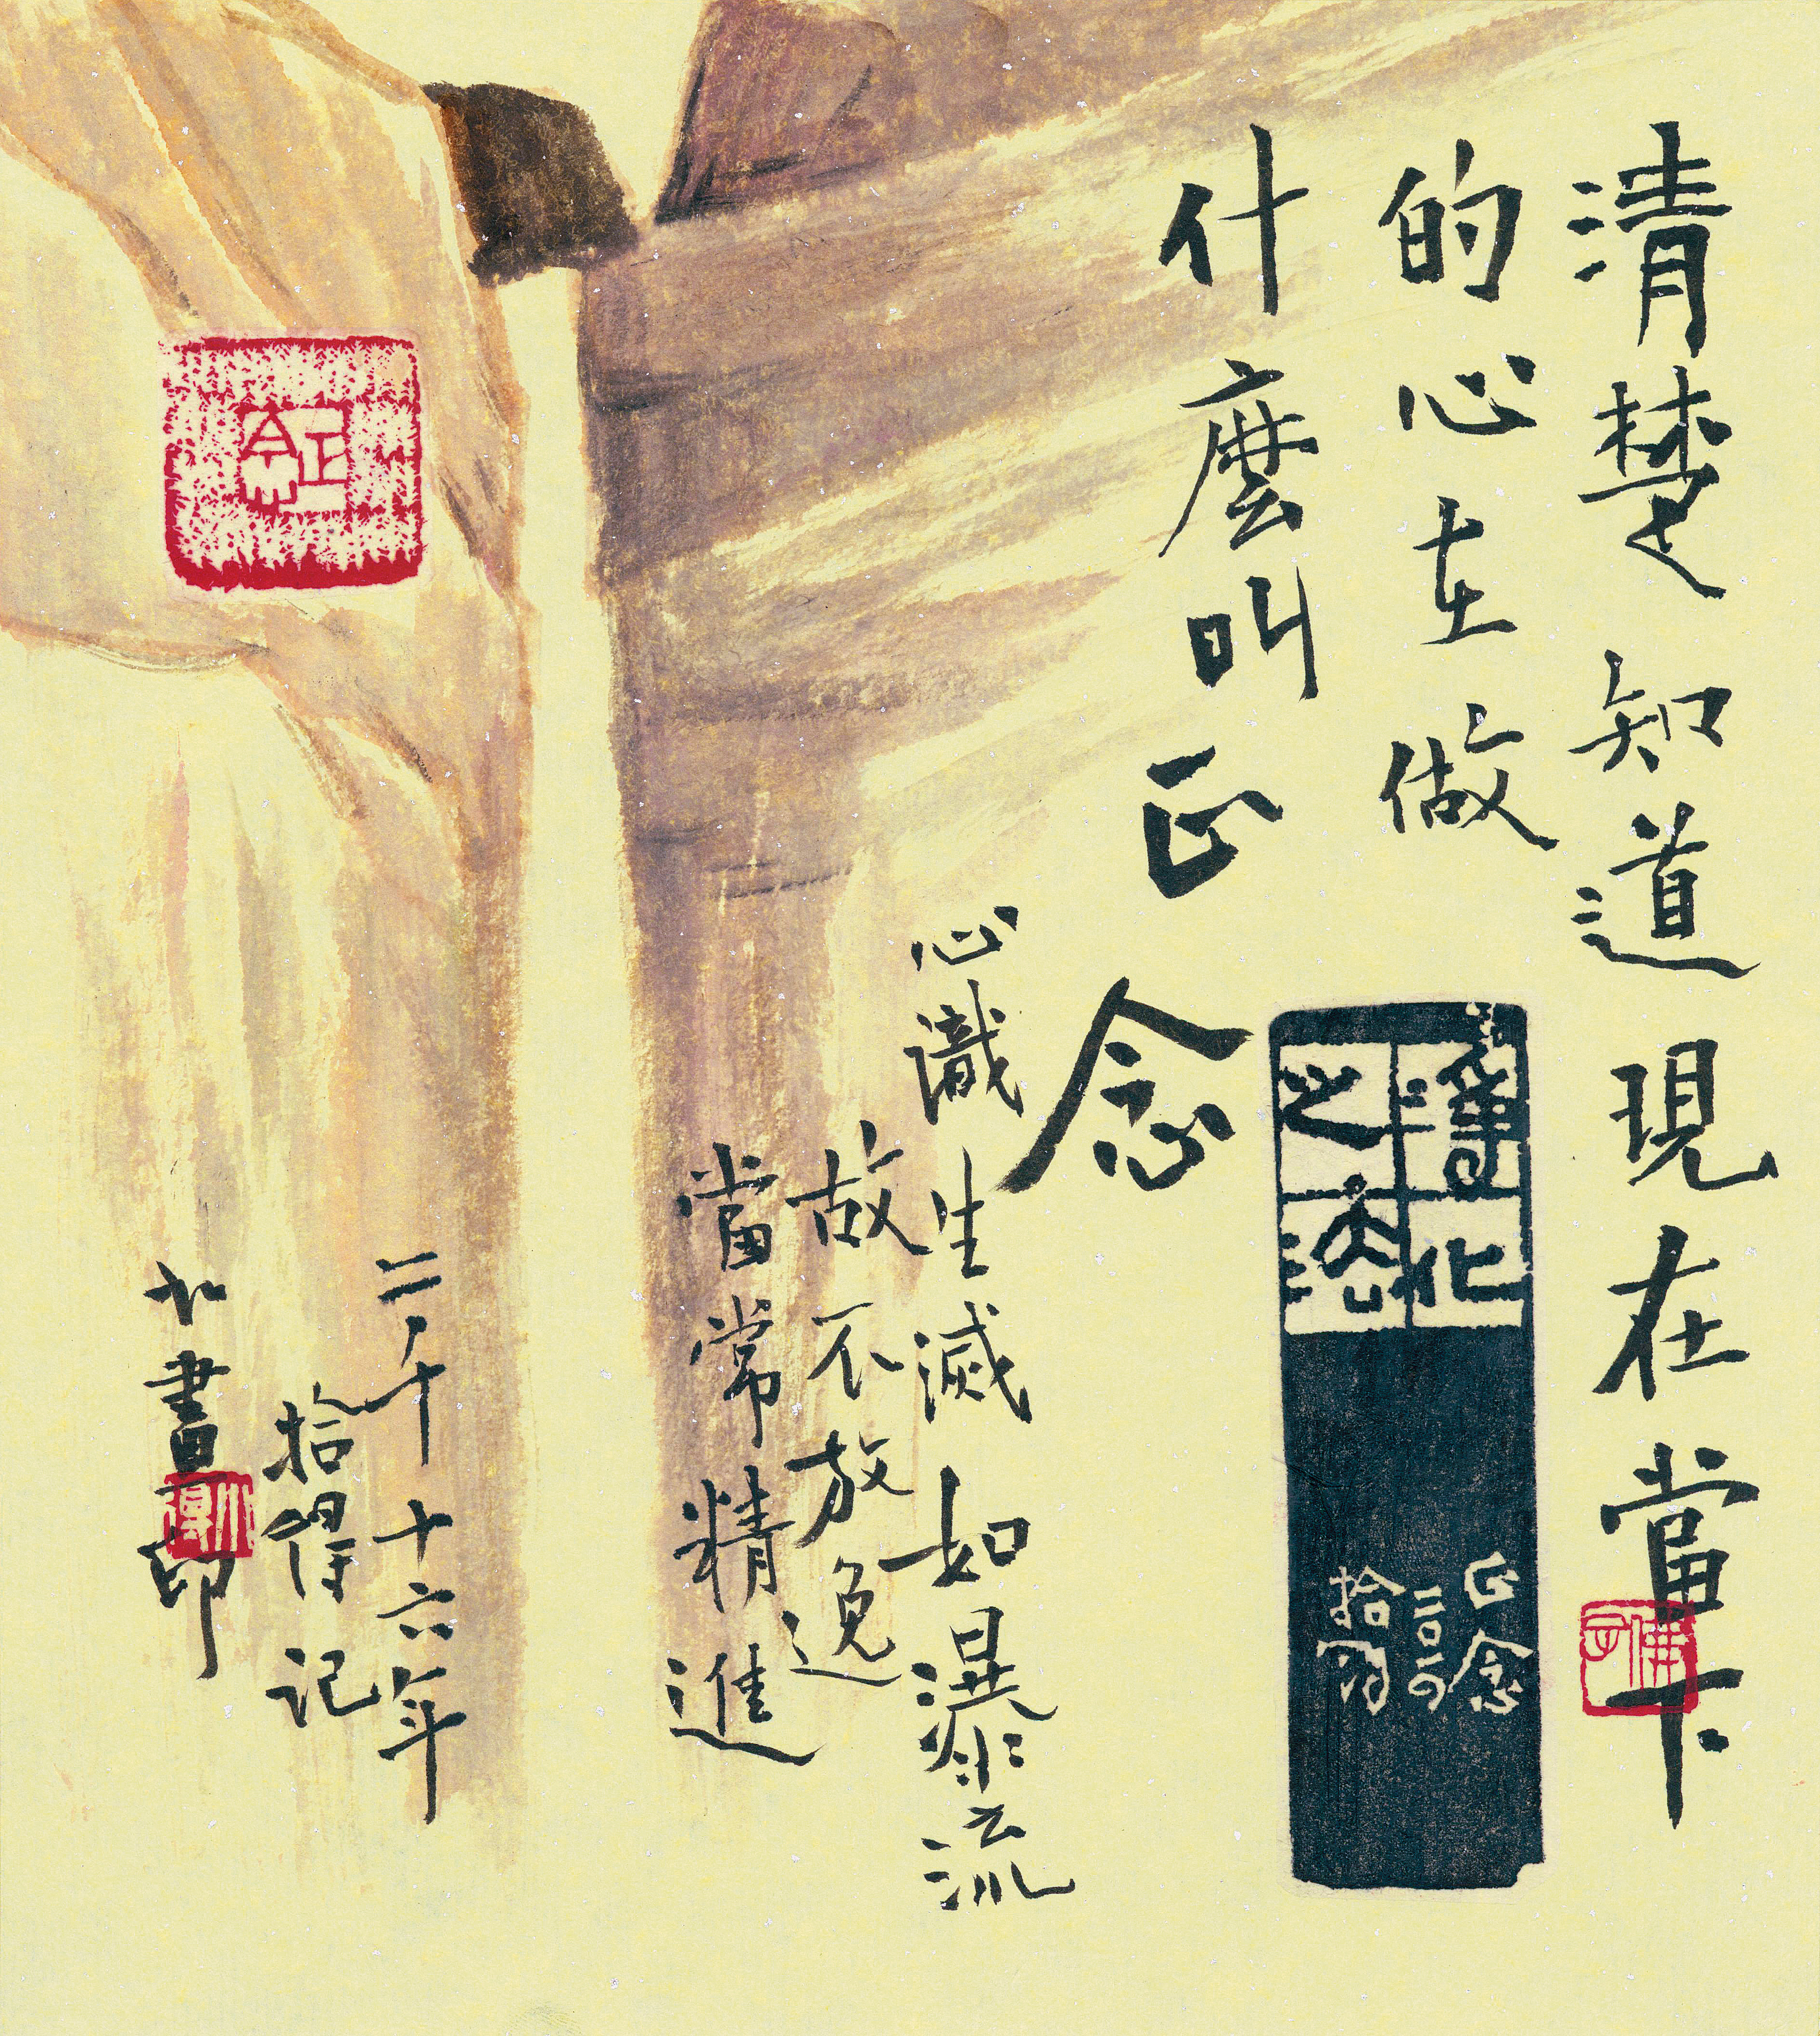 清楚知道現在當下
的心在做
什麼叫正
念
心識生滅如瀑流
故不放逸
當常精進
二千十六年
拾得記
書印
正念
二〇一〇
拾得
正念